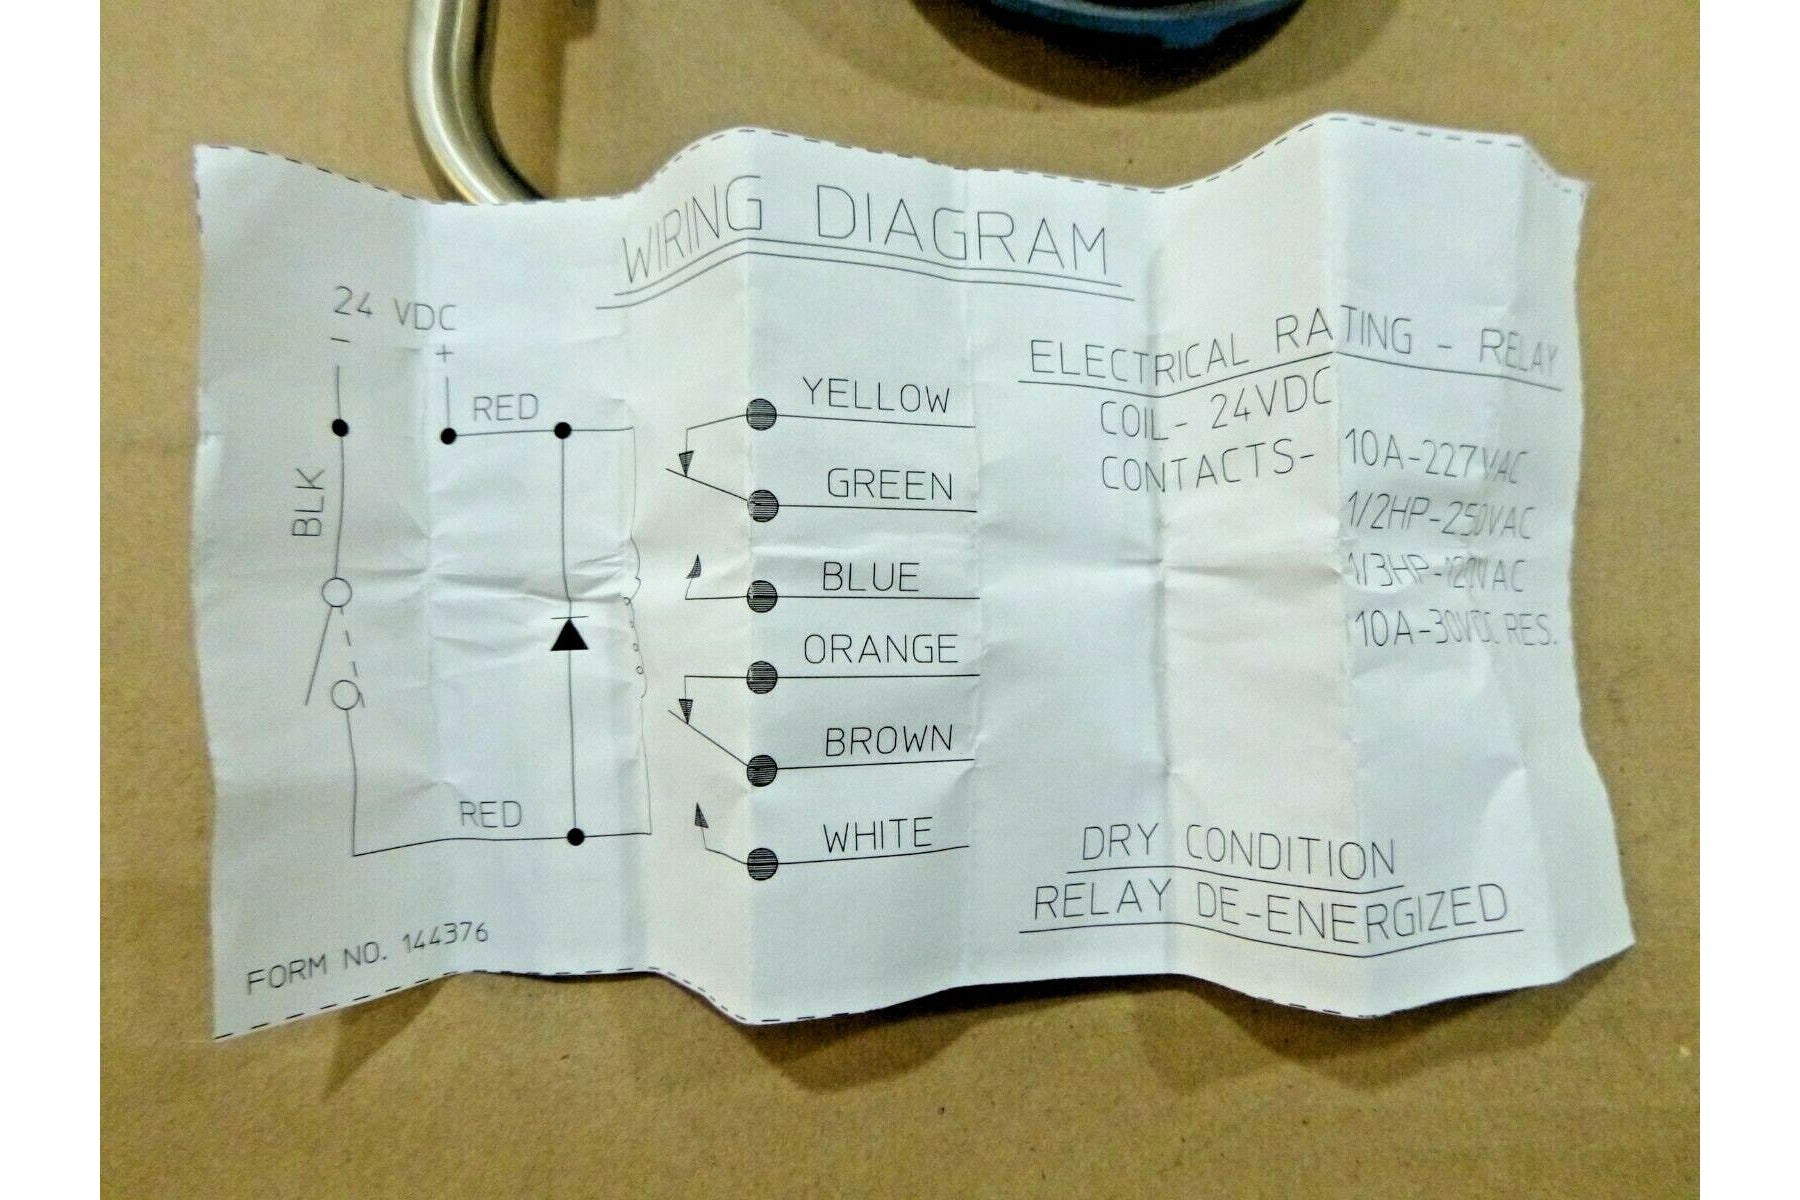 WIRING DIAGRAM
24 VDC
- +
RED
BLK
RED
YELLOW
GREEN
BLUE
ORANGE
BROWN
WHITE
ELECTRICAL RATING - RELAY
COIL- 24VDC
CONTACTS- 10A-227VAC
1/2HP-250VAC
1/3HP-120VAC
10A-30VDC RES.
DRY CONDITION
RELAY DE-ENERGIZED
FORM NO. 144376